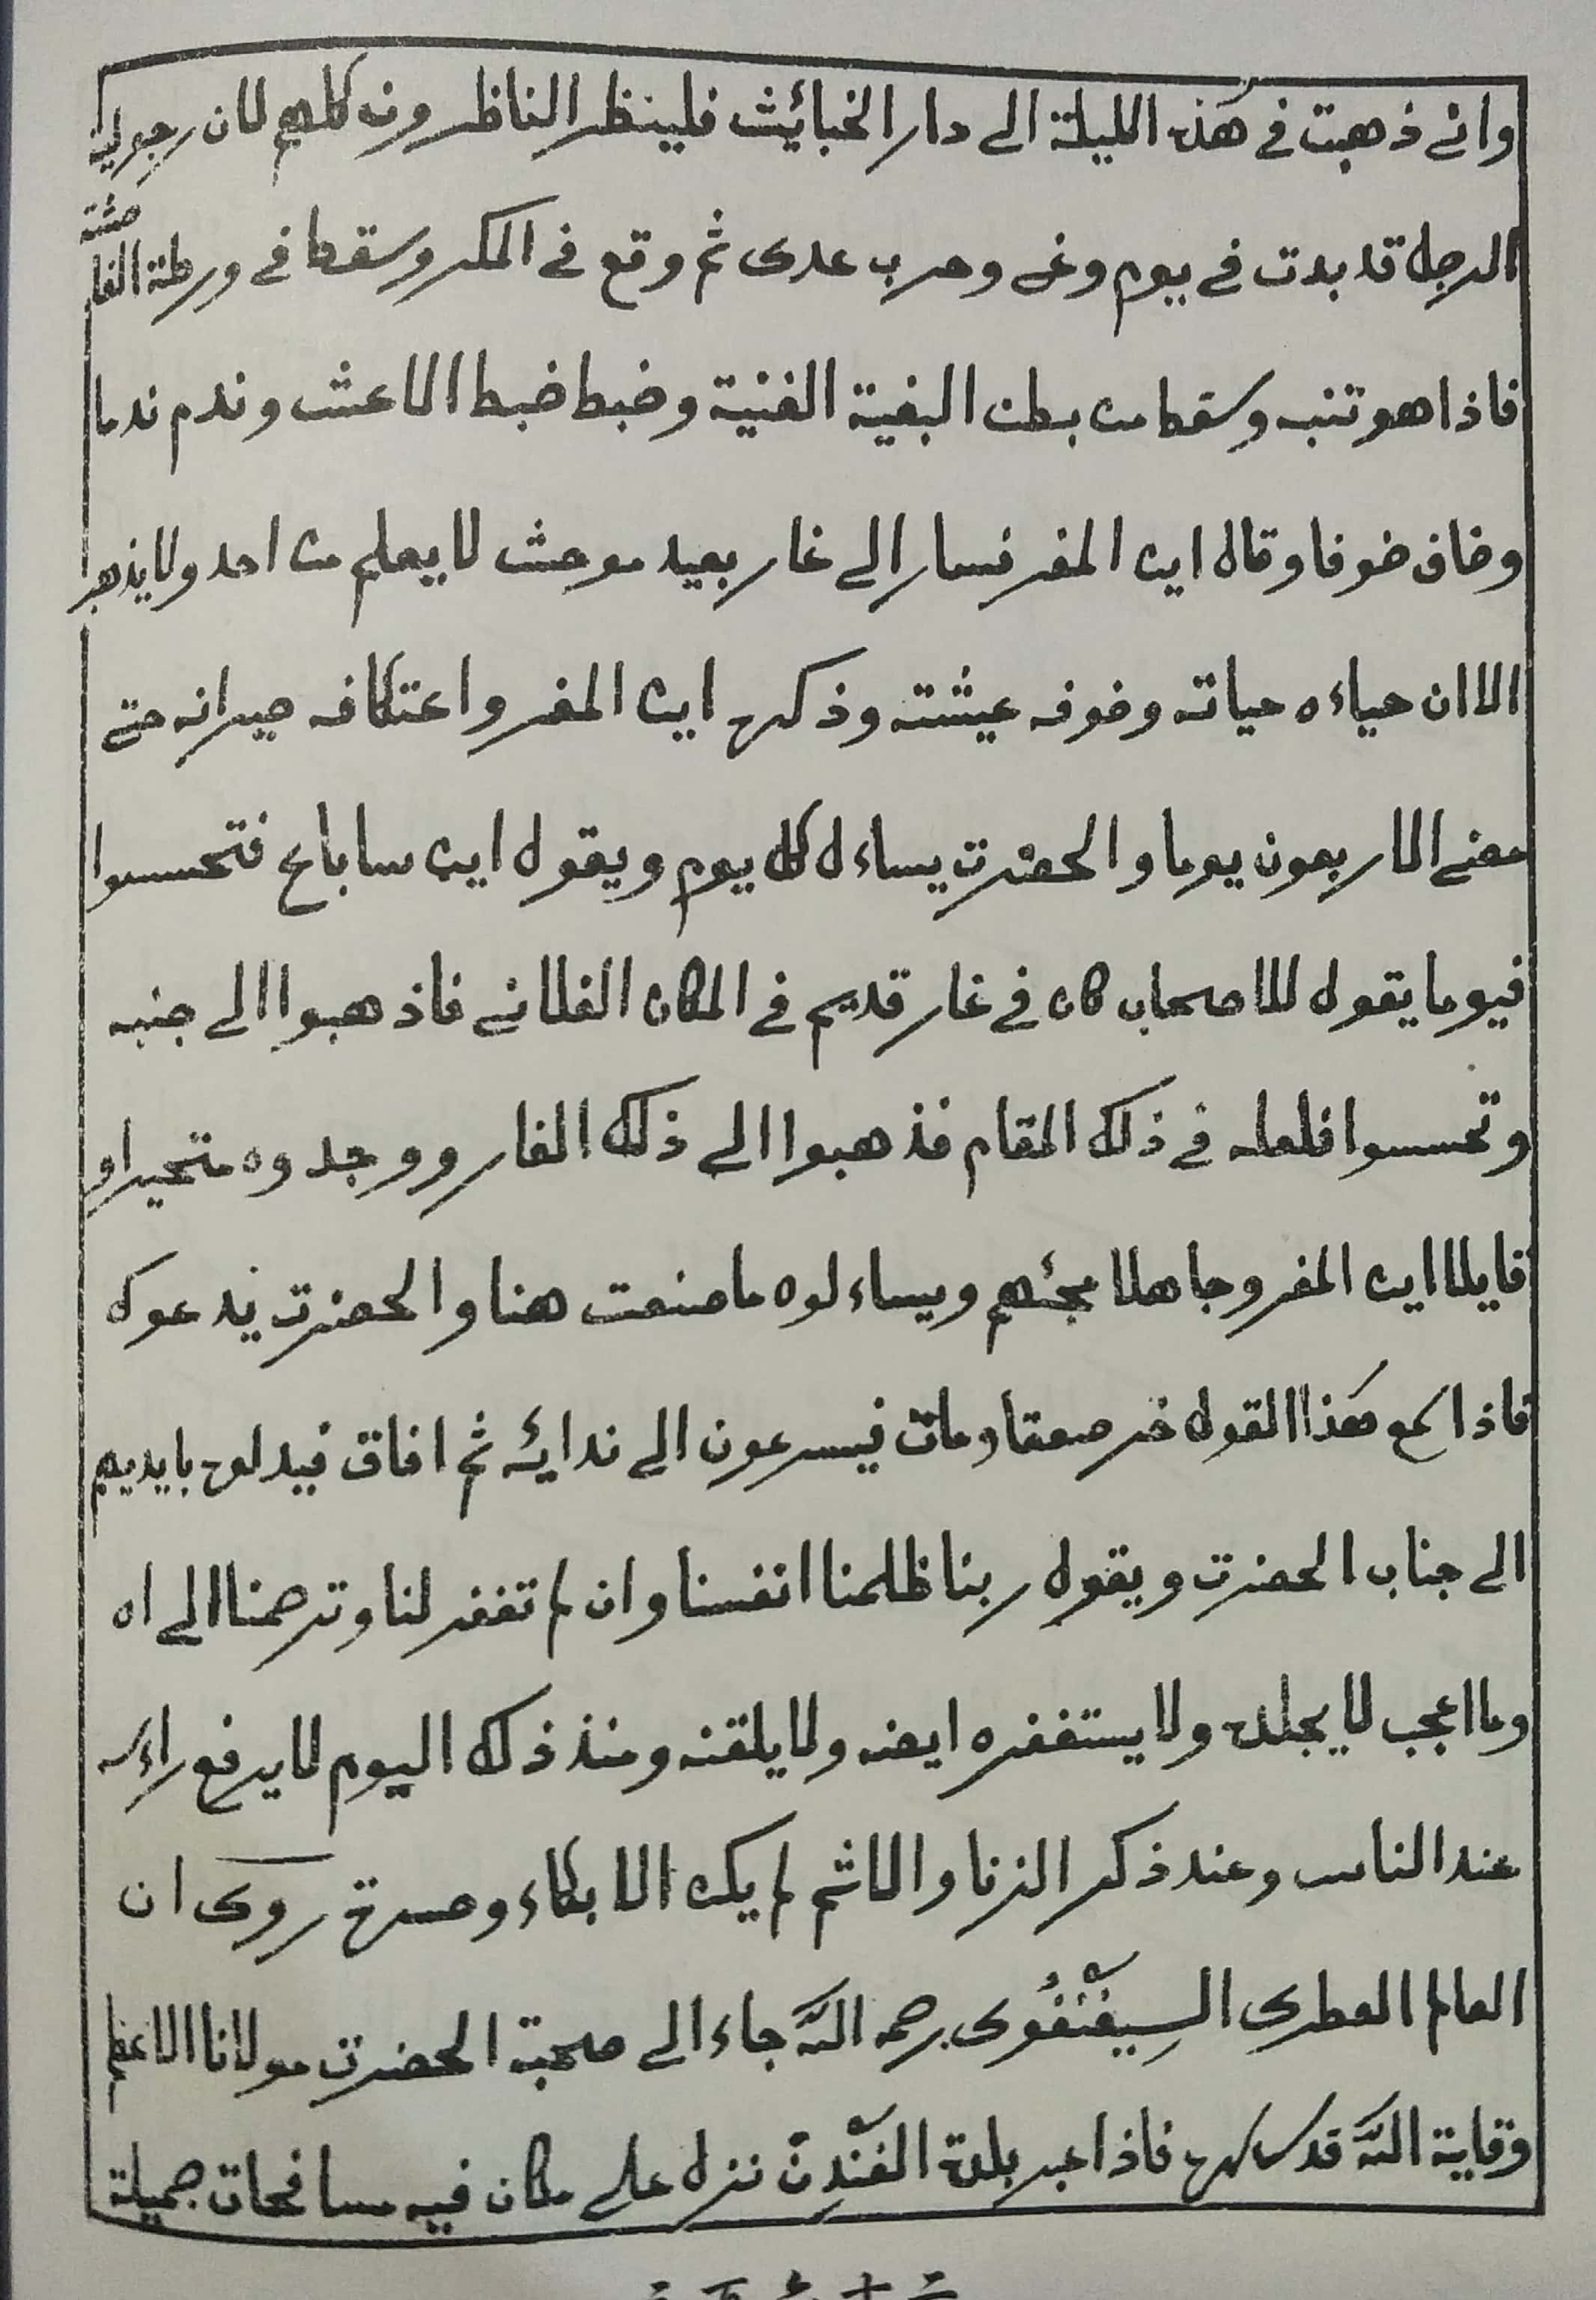 واني ذهبت في هذه الليلة الى دار الخبائيث فلينظر الناظرون كلهم لان رجولية
الرجل قد بدت في يوم وغى وحرب عدى ثم وقع في المكر وسقط في ورطة الفاحشة
فاذا هو تنبه وسقط من بطن البغية الغنية وضبط ضبط الاعشى وندم ندما
وخاف خوفا وقال اين المفر فسار الى غار بعيد موحش لا يعلم من احد ولا يذهب
الا ان حياءه حياته وخوفه عيشته وذكره اين المفر واعتكافه حيرانه حتى
مضى الاربعون يوما والحضرت يساءل كل يوم ويقول اين ساباع فتحسسوا
فيوما يقول للاصحاب كان في غار قديم في المكان الفلاني فاذهبوا الى جنبه
وتحسسوا فلعله في ذلك المقام فذهبوا الى ذلك الغار ووجدوه متحيرا و
قايلا اين المفر وجاهلا مجئهم ويساءلوه ما صنعت هنا والحضرت يدعوك
فاذا سمع هذا القول خر صعقا ومات فيسرعون الى ندايه ثم افاق فيدلوه بايديهم
الى جناب الحضرت ويقول ربنا ظلمنا انفسنا وان لم تغفر لنا وترحمنا الى اه
وما اعجب لا يجلده ولا يستغفره ايضه ولا يلقنه ومنذ ذلك اليوم لا يرفع راءسه
عند الناس وعند ذكر الزنا والاثم لم يكن الا بكاء وحسرة روى ان
العالم العطرى السيفنفوى رحمه الله جاء الى صحبة الحضرت مولانا الاعظم
وقاية الله قدس سره فاذا عبر بلدة الفندن نزل على مكان فيه مسافحات جميلة